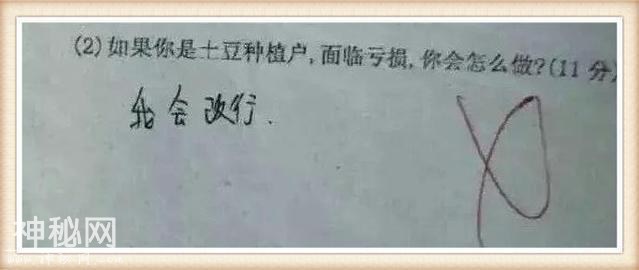 (2)如果你是土豆种植户,面临亏损,你会怎么做?(11 分)
我会改行.
神秘网